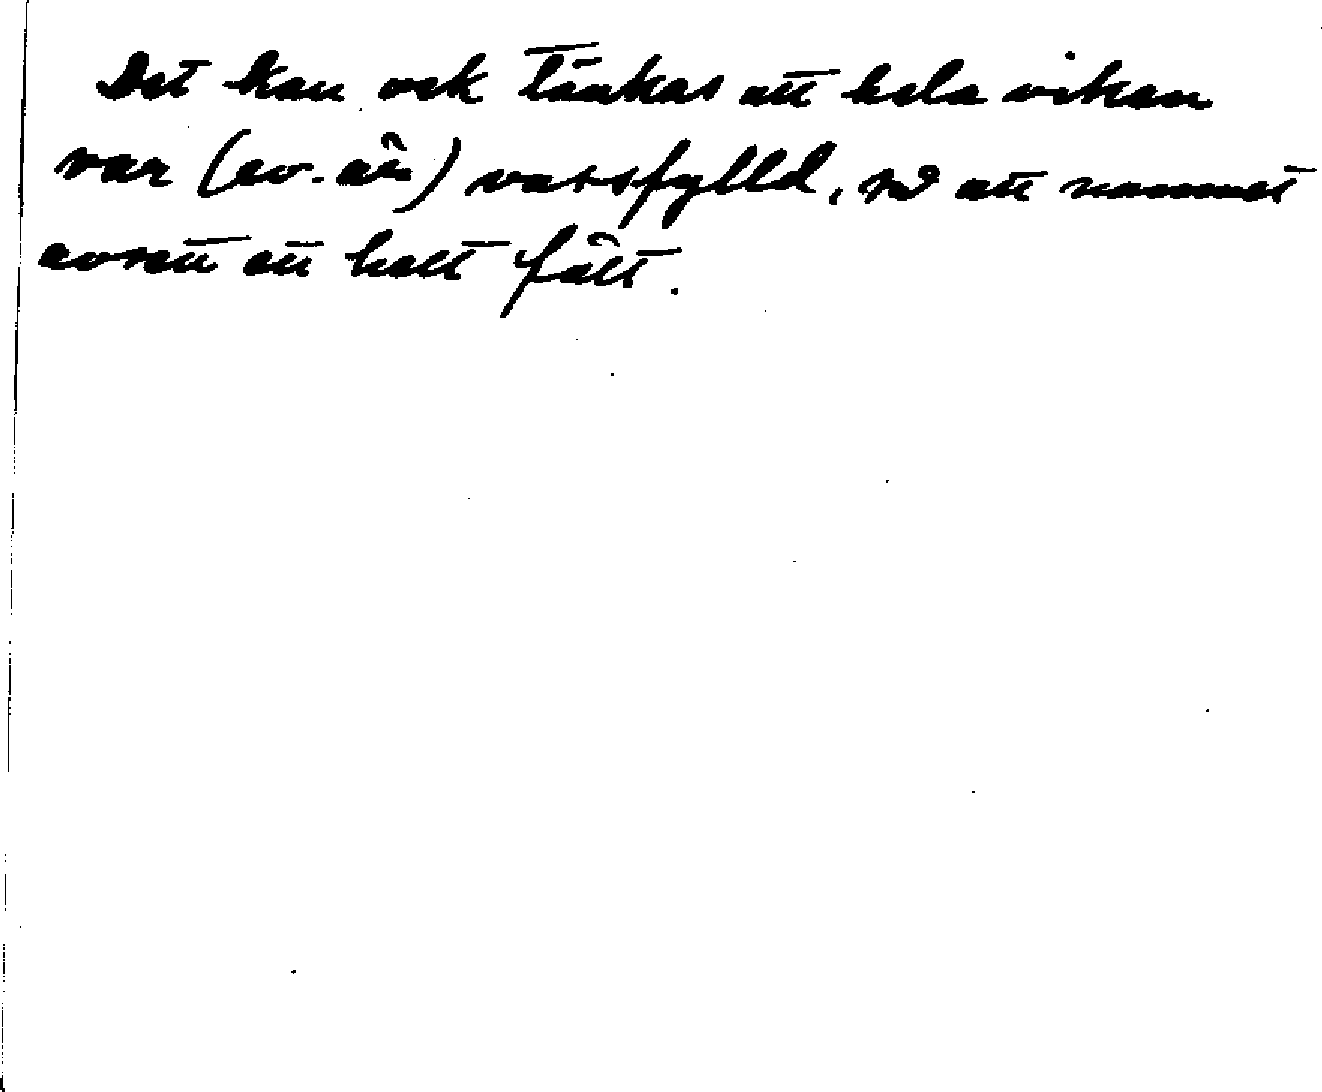 Det kan ock tänkas att hela viken
var (ev. är) vassfylld, så att namnet
avsett ett helt fält.